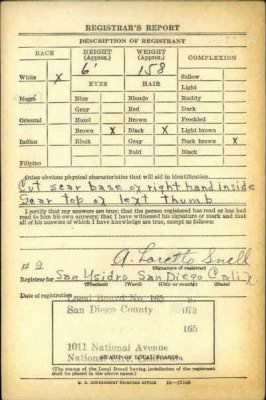 REGISTRAR'S REPORT
DESCRIPTION OF REGISTRANT
RACE HEIGHT (Approx.) WEIGHT (Approx.) COMPLEXION
White X 6' 158 Sallow
EYES HAIR Light
Negro Blue Blonde Ruddy
Gray Red Dark
Oriental Hazel Brown Freckled
Brown X Black X Light brown
Indian Black Gray Dark brown X
Bald Black
Filipino
Other obvious physical characteristics that will aid in identification
Cut scar base of right hand inside
Scar top of left thumb
I certify that my answers are true; that the person registered has read or has had
read to him his own answers; that I have witnessed his signature or mark and that
all of his answers of which I have knowledge are true, except as follows:
A. Loretto Snell
(Signature of registrar)
Registrar for San Ysidro San Diego Calif
(Precinct) (Ward) (City or county) (State)
Date of registration
Local Board No. 165
San Diego County 073
165
1011 National Avenue
National City, California
(STAMP OF LOCAL BOARD)
(The stamp of the Local Board having jurisdiction of the registrant
shall be placed in the above space.)
U. S. GOVERNMENT PRINTING OFFICE